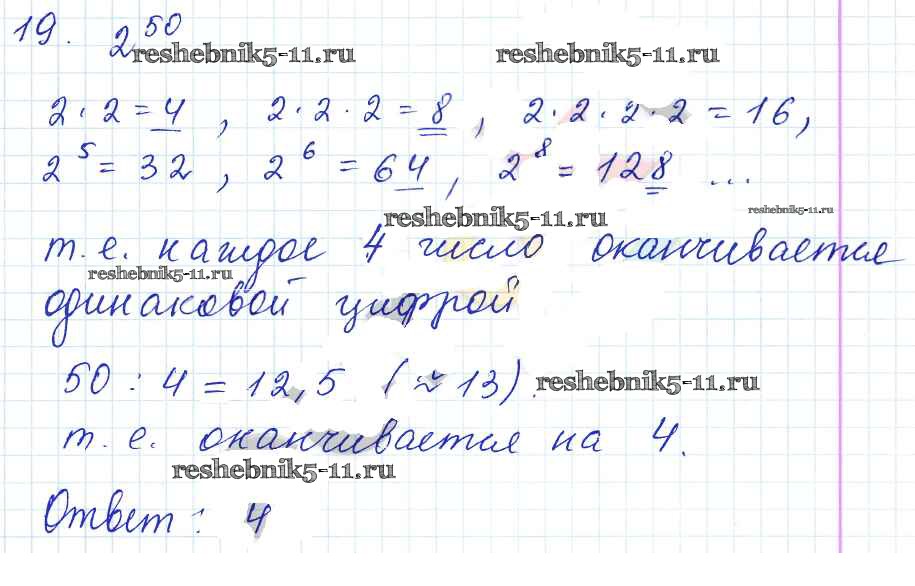 19. 2^50
reshebnik5-11.ru reshebnik5-11.ru
2·2=4, 2·2·2=8, 2·2·2·2=16,
2^5=32, 2^6=64, 2^8=128 ...
reshebnik5-11.ru reshebnik5-11.ru
т.е. каждое 4 число оканчивается
reshebnik5-11.ru
одинаковой цифрой
50:4=12,5 (≈13). reshebnik5-11.ru
т.е. оканчивается на 4.
reshebnik5-11.ru
Ответ: 4